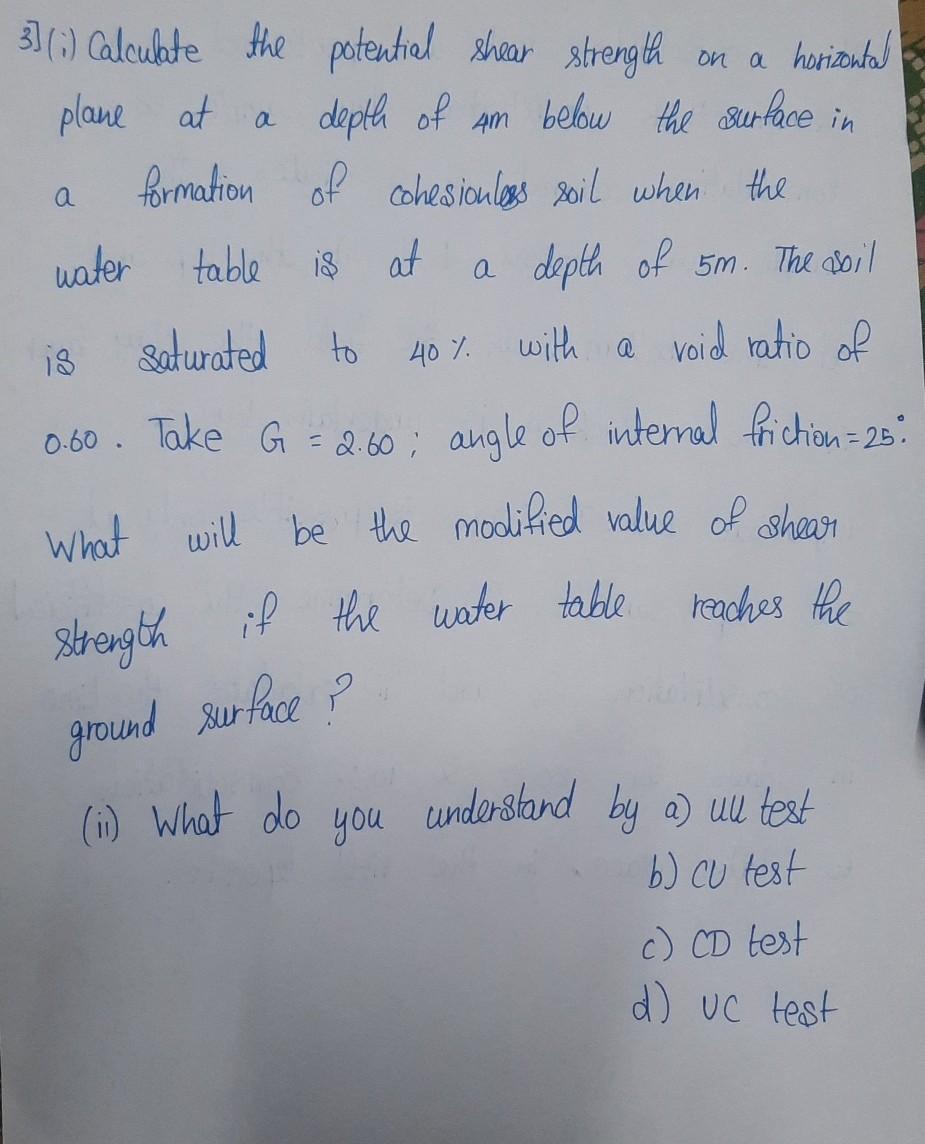 3](i) Calculate the potential shear strength on a horizontal
plane at a depth of 4m below the surface in
a formation of cohesionless soil when the
water table is at a depth of 5m. The soil
is saturated to 40 % with a void ratio of
0.60. Take G = 2.60; angle of internal friction = 25°.
What will be the modified value of shear
strength if the water table reaches the
ground surface?
(ii) What do you understand by a) UU test
b) CU test
c) CD test
d) UC test